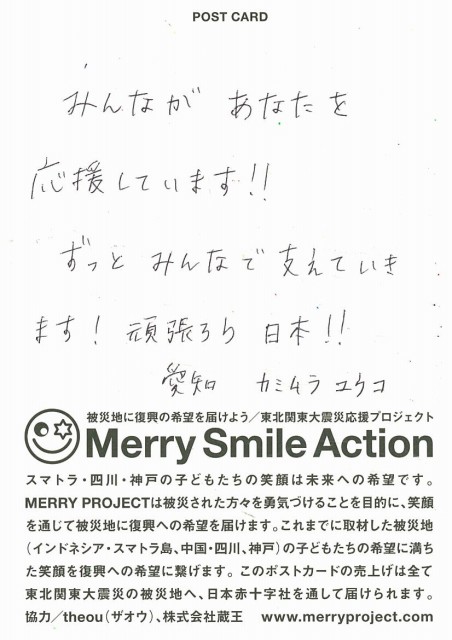 POST CARD
みんなが あなたを
応援しています!!
ずっと みんなで 支えていき
ます! 頑張ろう 日本!!
愛知 カミムラ ユウコ
被災地に復興の希望を届けよう/東北関東大震災応援プロジェクト
Merry Smile Action
スマトラ・四川・神戸の子どもたちの笑顔は未来への希望です。
MERRY PROJECTは被災された方々を勇気づけることを目的に、笑顔
を通じて被災地に復興への希望を届けます。これまでに取材した被災地
(インドネシア・スマトラ島、中国・四川、神戸)の子どもたちの希望に満ち
た笑顔を復興への希望に繋げます。このポストカードの売上げは全て
東北関東大震災の被災地へ、日本赤十字社を通して届けられます。
協力/theou(ザオウ)、株式会社蔵王 www.merryproject.com